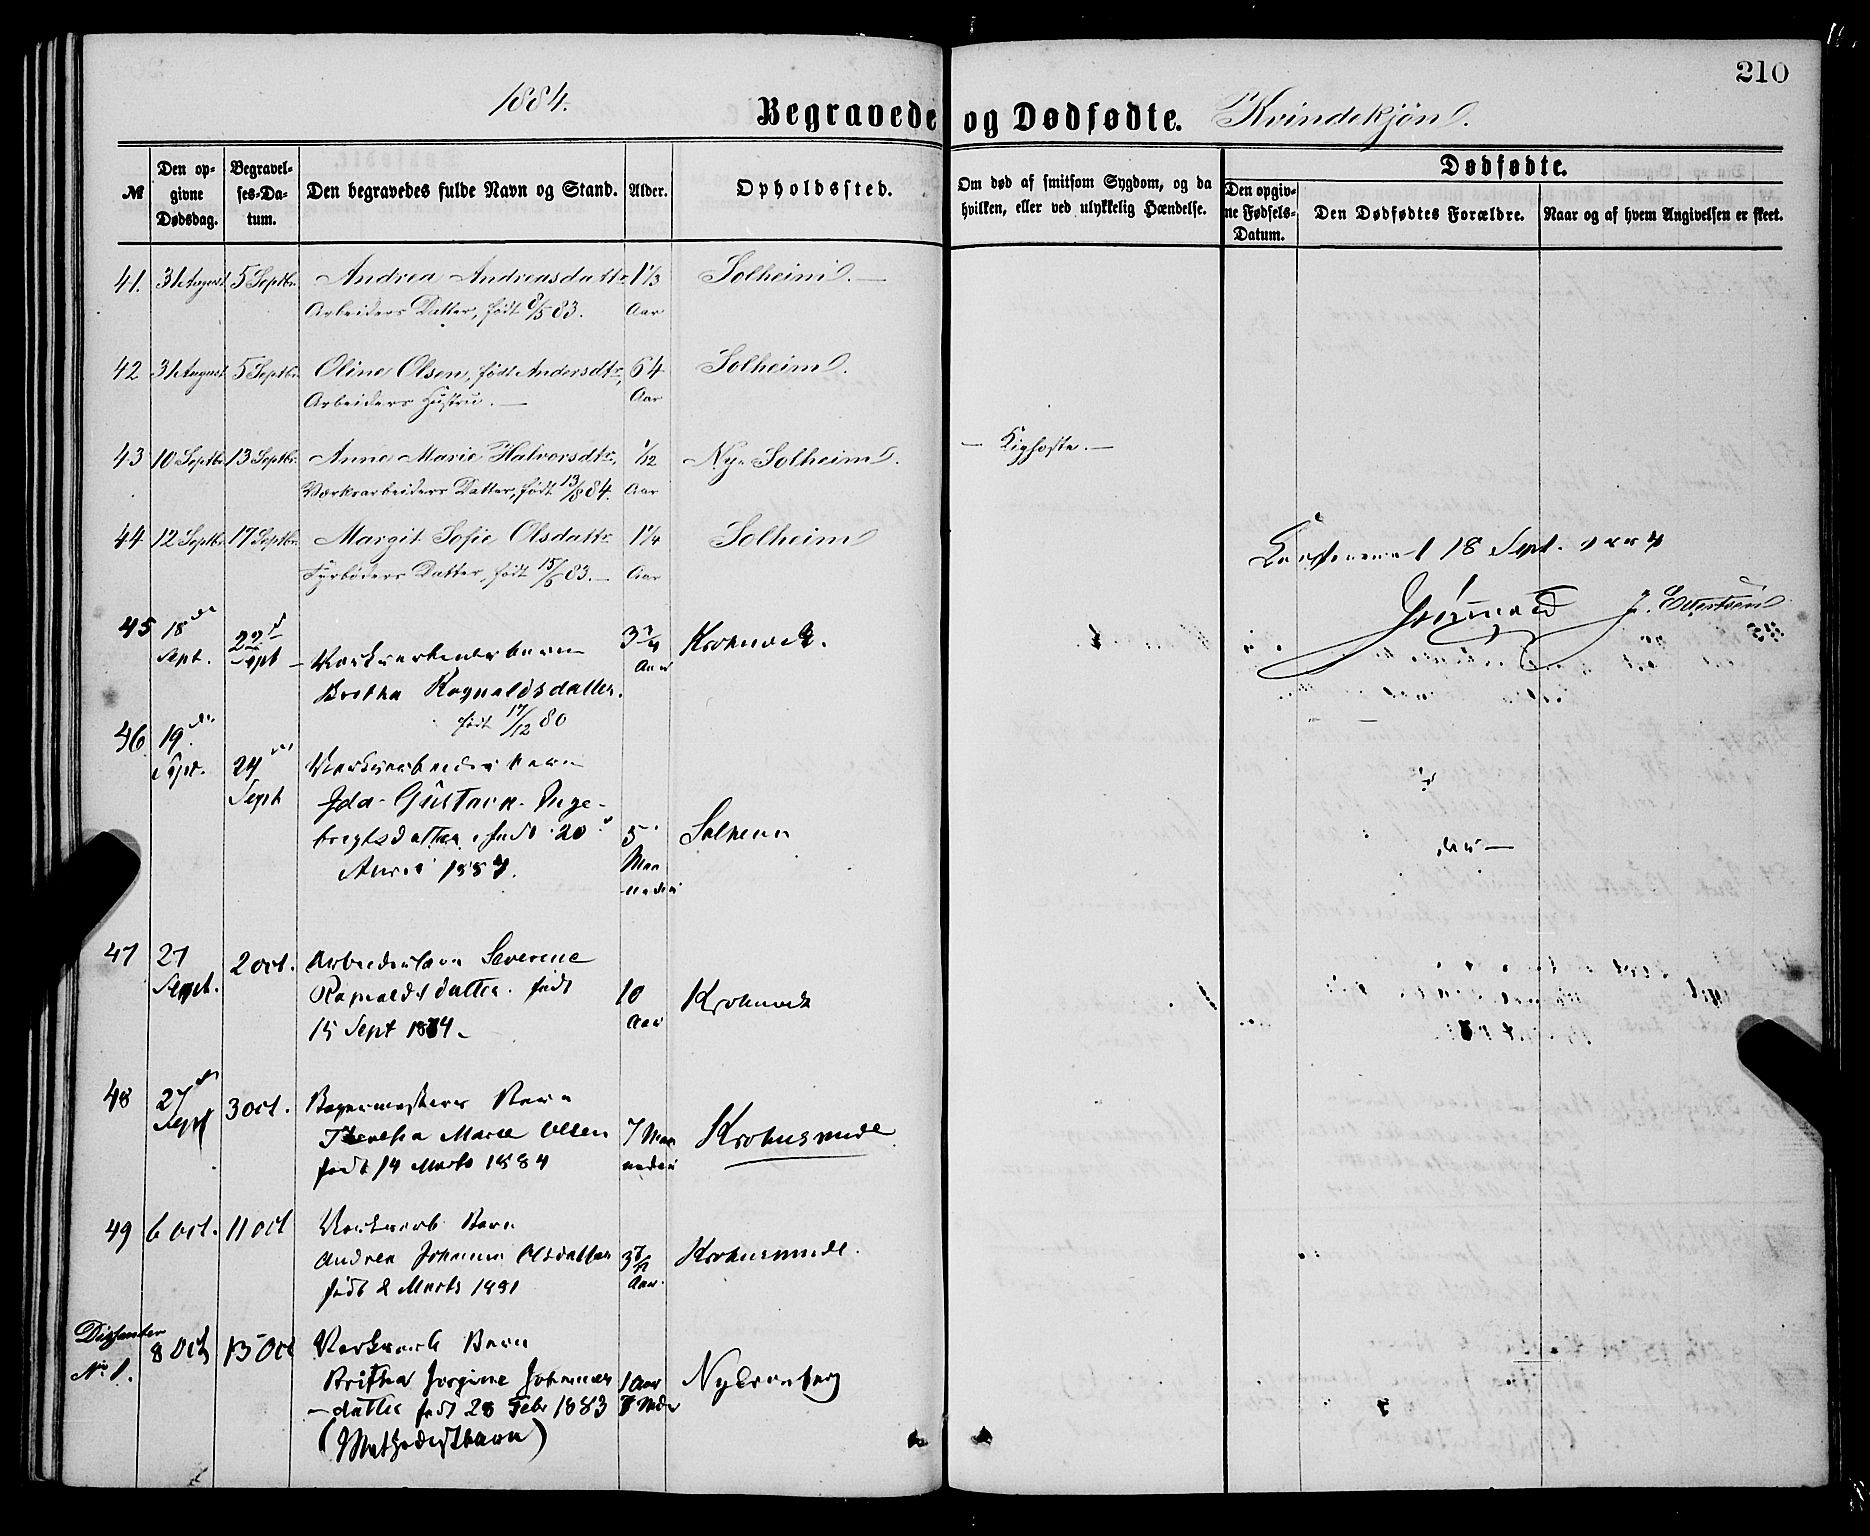 210
1884.
Begravede og Dødfødte. Kvindekjøn.
№
Den opgivne Dødsdag.
Begravelses-Datum.
Den begravedes fulde Navn og Stand.
Alder.
Opholdssted.
Om død af smitsom Sygdom, og da hvilken, eller ved ulykkelig Hændelse.
Dødfødte.
Den opgivne Fødsels-Datum.
Den Dødfødtes Forældre.
Naar og af hvem Angivelsen er skeet.
41. 31 August 5 Septbr. Andrea Andreasdattr. 1 1/3 Solheim. —
Arbeiders Datter, født 8/5 83. Aar
42 31 August 5 Septbr. Oline Olsen, født Andersdtr., 64 Solheim.
Arbeiders Hustru. — Aar
43 10 Septbr. 13 Septbr. Anne Marie Halvorsdtr., 1/12 Ny-Solheim. — Kighoste. —
Værksarbeiders Datter, født 13/8 84. Aar
44 12 Septbr. 17 Septbr. Margit Sofie Olsdattr. 1 1/4 Solheim
Fyrbøders Datter, født 15/6 83. — Aar
18 Sept.
45 18de Sept. 22d Sept 3 3/4 Aar Krohnvik.
Bertha Ragnaldsdatter.
født 17/12 80
46 19de Sept. 24de Sept
Ida Gustava Inge-
brigtsdatter, født 20 5 Solheim
1884. Maaneder
47 27 Sept. 2 Oct. Severine
Ragnaldsdatter. født 10 Krohnvik
15 Sept 1874. Aar
48 27de Sept 3 Oct. Bagermesters Barn
Marie Olsen 7 Maaneder Krohnsminde
født 14 Marts 1884
49 6 Oct. 11 Oct Værksarb. Barn
Andrea Johanna Olsdatter 3 7/12 Krohnsminde.
født 2 Marts 1881 Aar.
Dissenter 8 Oct 13 Oct Værksarb Barn
No 1. Johannes- 1 Aar
datter født 28 Febr 1883 7 Mdr
(Methodistbarn)